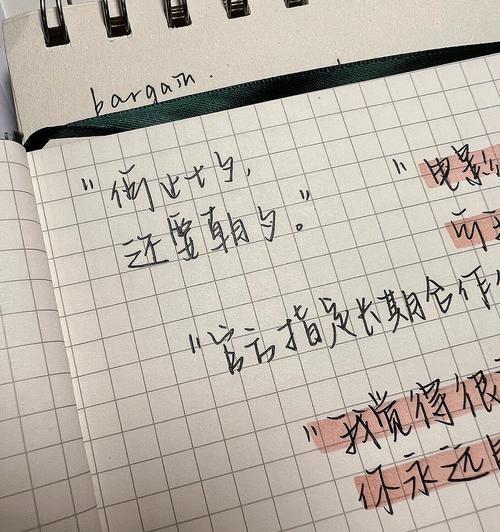 bargain.
"何止七夕,
还要朝夕。"
"电影
"官方指定长期合作
"我觉得很
你永远